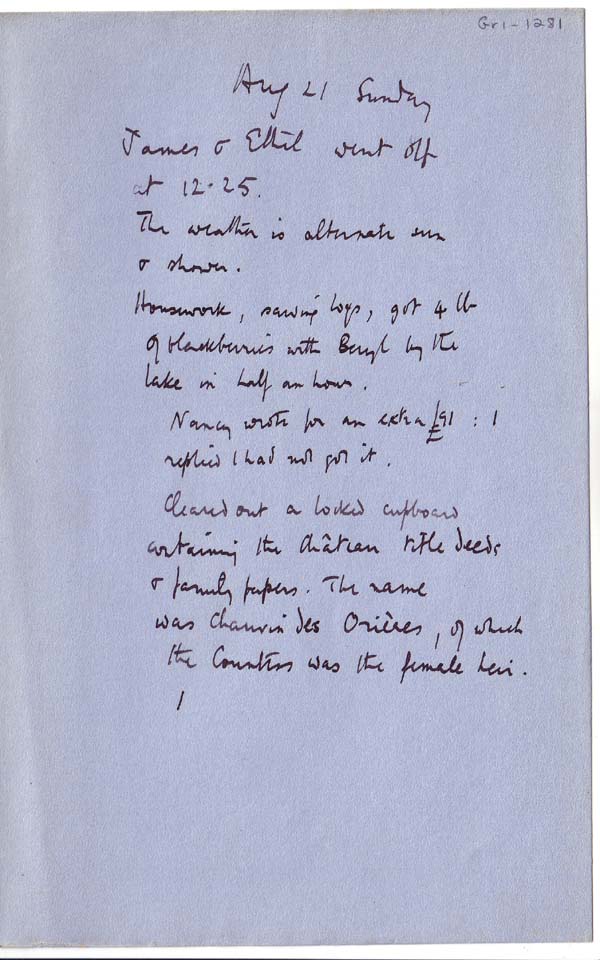 Gri-1281
Aug 21 Sunday
James & Ethel went off
at 12.25.
The weather is alternate sun
& shower.
Housework, sawing logs, got 4 lb
of blackberries with Beryl by the
lake in half an hour.
Nancy wrote for an extra £91 : I
replied I had not got it.
Cleared out a locked cupboard
containing the château title deeds
& family papers. The name
was Chauvin des Orières, of which
the Countess was the female heir.